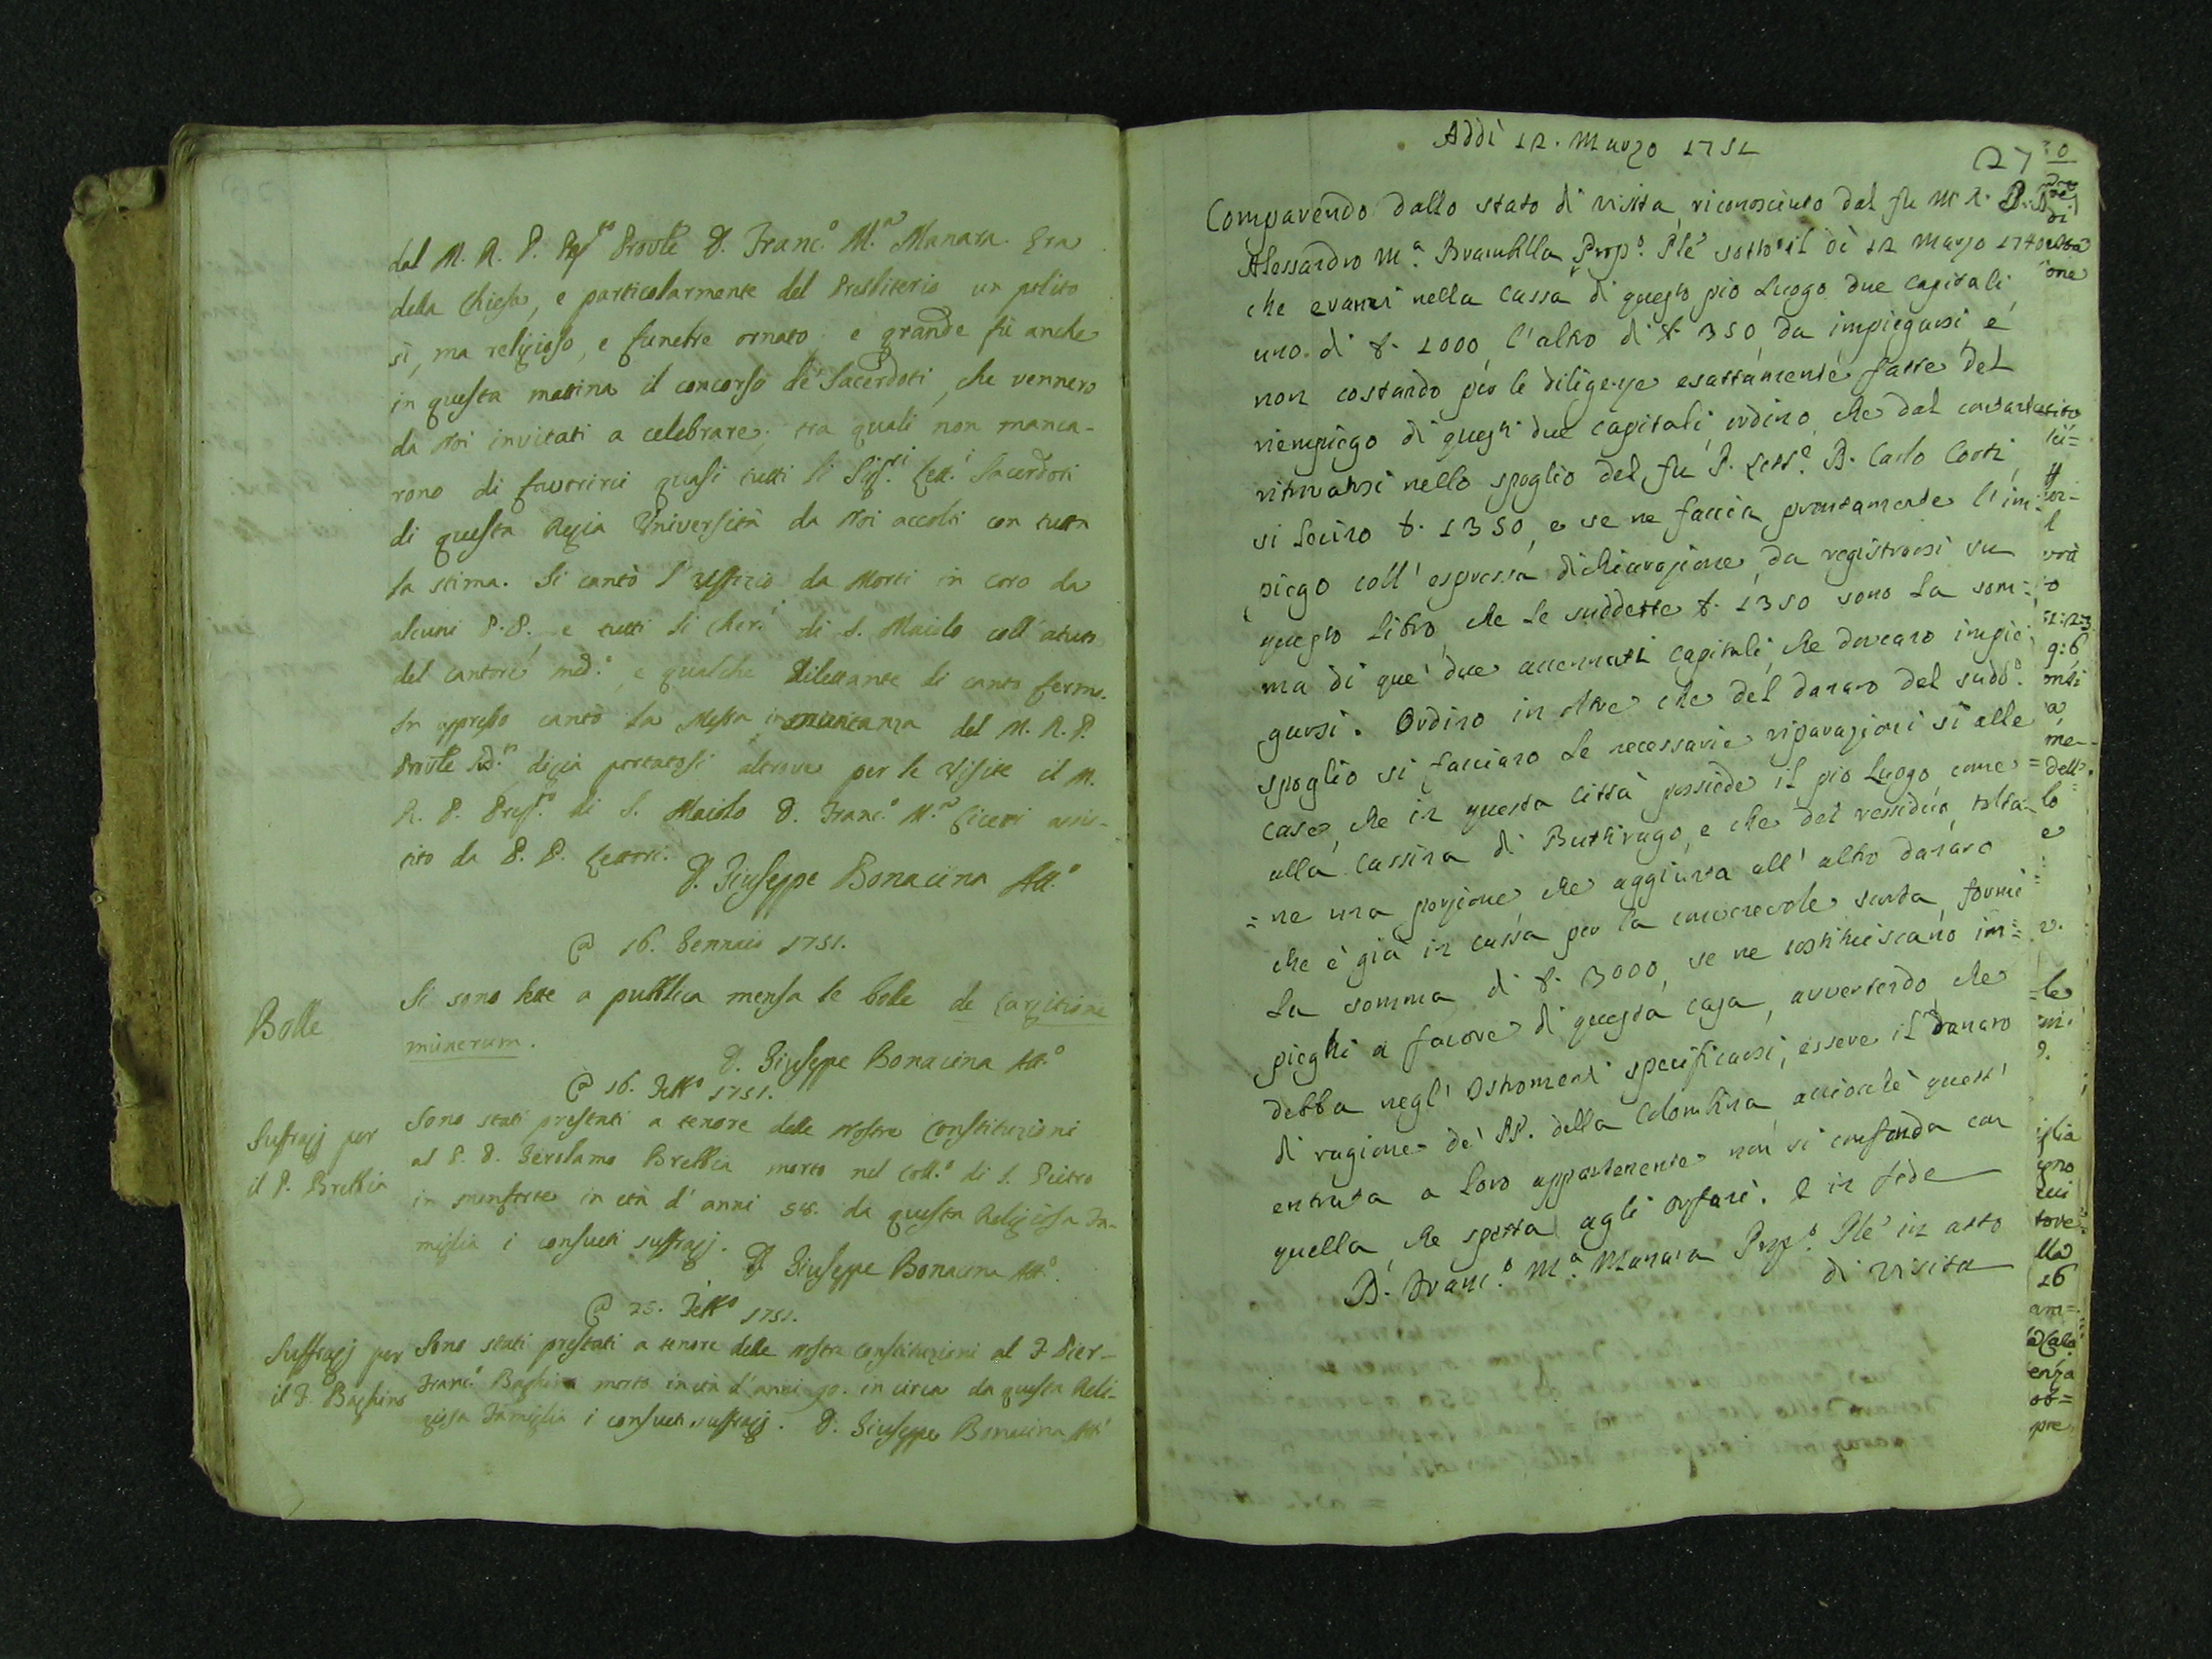 dal M. R. P. Prep.to Provle D. Franc.o M.a Manara. Era
della Chiesa, e particolarmente del Presbiterio un polito
sì, ma religioso, e funebre ornato: e grande fù anche
in questa mattina il concorso de' Sacerdoti, che vennero
da Noi invitati a celebrare; tra quali non manca-
rono di favorirci quasi tutti li Sig.ri Lett.i Sacerdoti
di questa Regia Università da Noi accolti con tutta
la stima. Si cantò l'Uffizio da Morti in coro da
alcuni P.P. e tutti li Cher.i di S. Maiolo coll' aiuto
del cantore med.o, e qualche Dilettante di canto fermo.
In appresso cantò la Messa in mancanza del M. R. P.
Provle Sud.o digià portatosi altrove per le Visite il M.
R. P. Prep.to di S. Maiolo D. Franc.o M.a Ciceri assis-
tito da P. P. Lettori.
D. Giuseppe Bonacina Att.o
@ 16. Gennaio 1751.
Bolle
Si sono lette a pubblica mensa le bolle de Largitione
munerum.
D. Giuseppe Bonacina Att.o
@ 16. Febb.o 1751.
Suffragj per
il P. Brebbia
Sono stati prestati a tenore delle Nostre Constituzioni
al P. D. Gerolamo Brebbia morto nel Coll.o di S. Pietro
in monforte in età d'anni da questa Religiosa Fa-
miglia i consueti suffragj.
D. Giuseppe Bonacina Att.o
@ 25. Febb.o 1751.
Suffragj per
il F. Baghino
Sono stati prestati a tenore delle nostre Constituzioni al F. Pier-
Franc.o Baghino morto in età d'anni 90. in circa da questa Reli-
giosa Famiglia i consueti suffragj. D. Giuseppe Bonacina Att.o
Addì 12. Marzo 1751
27
Comparendo dallo stato di visita riconosciuto dal fu M. R. P. D.
Alessandro M.a Brambilla Prep.o Ple sotto il dì 12 Marzo 1740
che eranvi nella Cassa di questo pio Luogo due Capitali,
uno di £. 1000, l'altro di £. 350, da impiegarsi e
non costando per le diligenze esattamente fatte del
riempiego di questi due capitali, ordino, che dal contante
ritrovatosi nello spoglio del fu P. Lett.e D. Carlo Corti
si levino £. 1350, e se ne faccia prontamente l'im-
piego coll' espressa dichiarazione, da registrarsi su
questo Libro, che le suddette £. 1350 sono la som-
ma di que' due accennati Capitali, che doveano impie-
garsi. Ordino in oltre che del danaro del sudd.o
spoglio si facciano le necessarie riparazioni sì alle
case, che in questa Città possiede il pio Luogo come
alla Cassina di Buttirago, e che del residuo, tolta-
ne una porzione che aggiunta all' altro danaro
che è già in cassa per la concorrevole scorta, formi
la somma di £. 3000, se ne costituiscano im-
pieghi a favore di questa casa, avvertendo che
debba negl' Istromenti specificarsi, essere il danaro
di ragione de' PP. della Colombina acciocchè quest'
entrata a loro appartenente non si confonda con
quella, che spetta agli orfani. E in fede
D. Franc.o M.a Manara Prep.o Ple in atto
di Visita